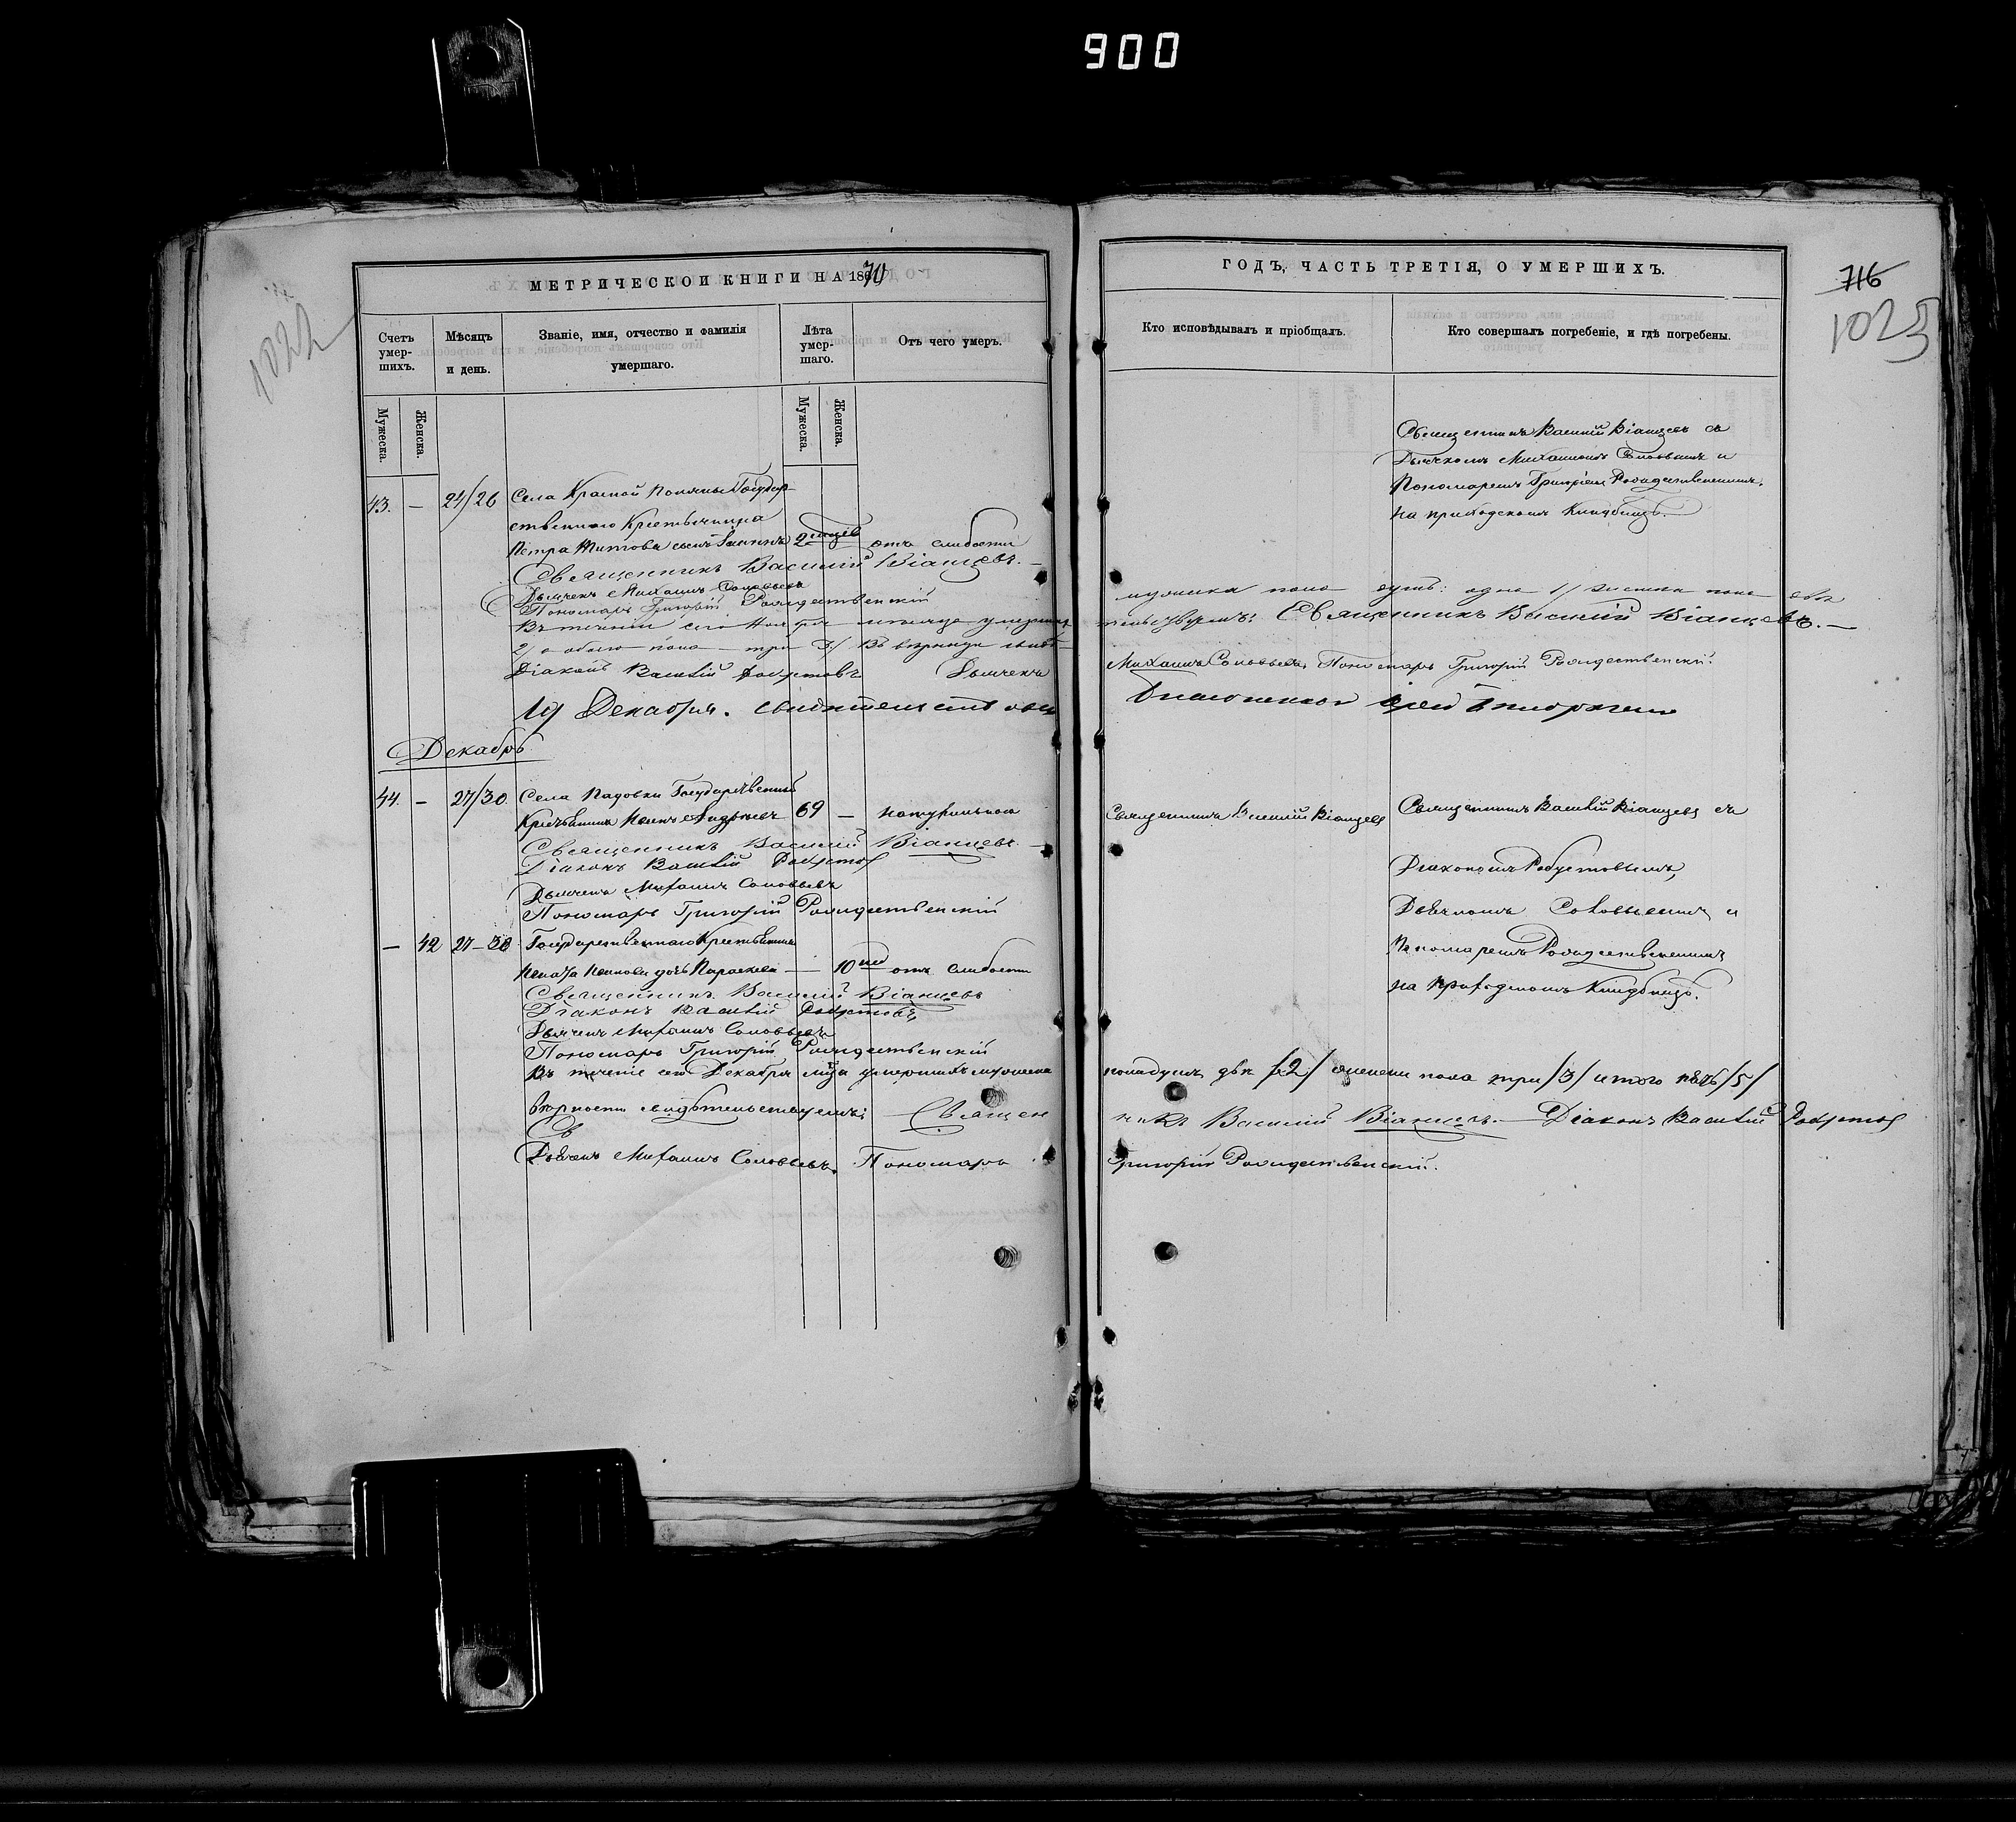 900
МЕТРИЧЕСКОЙ КНИГИ НА 1870
1022
Счетъ умер-шихъ.
Мужеска.
Женска.
Мѣсяцъ и день.
Званіе, имя, отчество и фамилія умершаго.
Лѣта умер-шаго.
Мужеска.
Женска.
Отъ чего умеръ.
43. — 24/26 Села Красной Поляны Государ-
ственнаго Крестьянина
Петра Титова сынъ 2 отъ слабости
Священникъ Василій Віанцевъ.—
Дьячекъ Михаилъ Соловьевъ
Пономарь Григорій Рождественскій
Въ течении сего Ноября месяца умершихъ
2/ а обоего пола — три 3/ Въ
Діаконъ Василій Робустовъ Дьячекъ
19 Декабря.
Декабрь
44. — 27/30. Села Падовки Государственный
Крестьянинъ 69 — натуральною
Священникъ Василій Віанцевъ.—
Діаконъ Василій Робустовъ
Дьячекъ Михаилъ Соловьевъ
Пономарь Григорій Рождественскій
— 42 27–30 Государственнаго Крестьянина
дочь Параскева — 10 отъ слабости
Священникъ Василій Віанцевъ
Діаконъ Василій Робустовъ
Дьячекъ Михаилъ Соловьевъ
Пономарь Григорій Рождественскій
Въ теченіе сего Декабря м-ца умершихъ мужеска
вѣрности свидѣтельствуемъ: Священ
Св
Дьячекъ Михаилъ Соловьевъ. Пономарь
ГОДЪ, ЧАСТЬ ТРЕТІЯ, О УМЕРШИХЪ.
716
1023
Кто исповѣдывалъ и пріобщалъ.
Кто совершалъ погребеніе, и гдѣ погребены.
Священникъ Василій Віанцевъ съ
Дьячкомъ Михаиломъ Соловьевымъ и
Пономаремъ Григоріемъ Рождественскимъ.
На приходскомъ Кладбищѣ.
мужеска пола одна 1/ женска пола две
Священникъ Василій Віанцевъ.—
Михаилъ Соловьевъ, Пономарь Григорій Рождественскій.
Священникъ Василій Віанцевъ
Священникъ Василій Віанцевъ съ
Діакономъ Робустовымъ,
Дьячкомъ Соловьевымъ и
Пономаремъ Рождественскимъ
На Приходскомъ Кладбищѣ.
два /2/ женска пола три /3/ итого пять /5/
никъ Василій Віанцевъ.— Діаконъ Василій Робустовъ
Григорій Рождественскій.